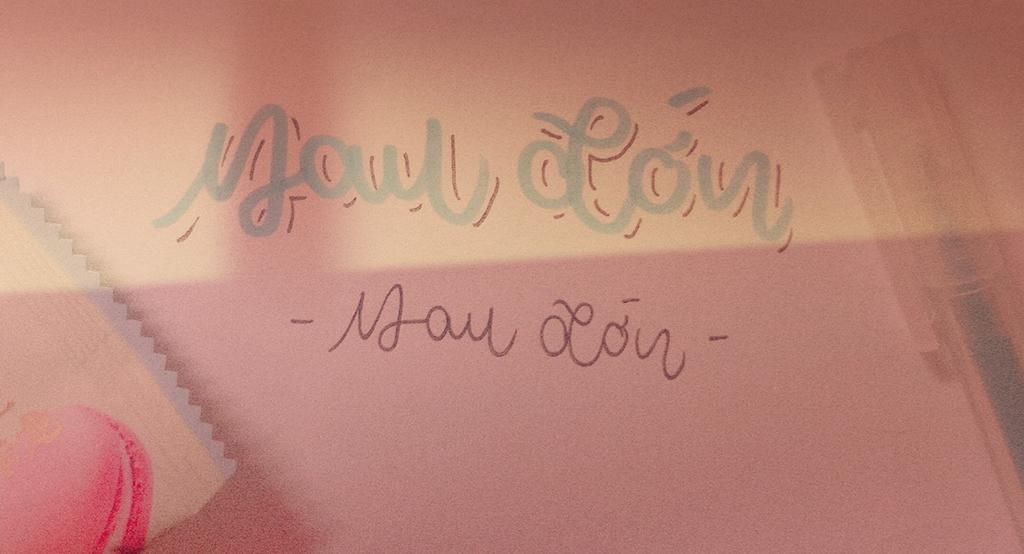 Mau Lớn
- Mau Lớn -